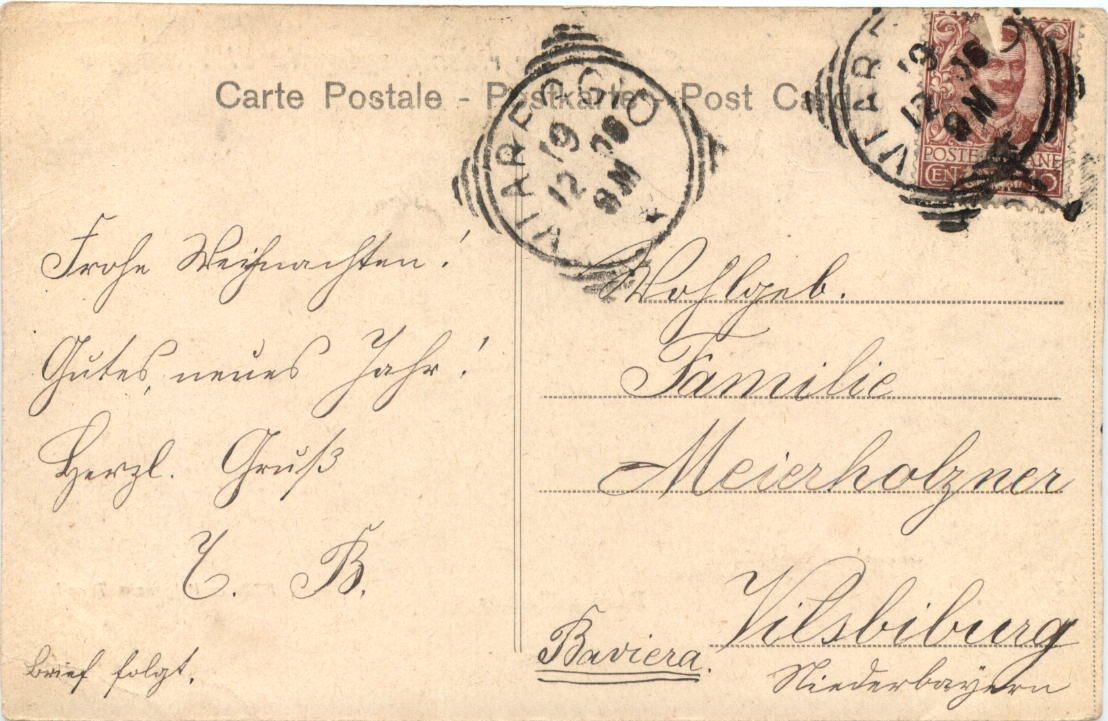 Carte Postale - Postkarte - Post Card
VIAREGGIO
19
12 06
8 M
VIAR
19
12 06
8 M
POSTE ITALIANE
Frohe Weihnachten!
Gutes, neues Jahr!
Herzl. Gruß
B.
Brief folgt.
Wohlgeb.
Familie
Meierholzner
Vilsbiburg
Baviera.
Niederbayern